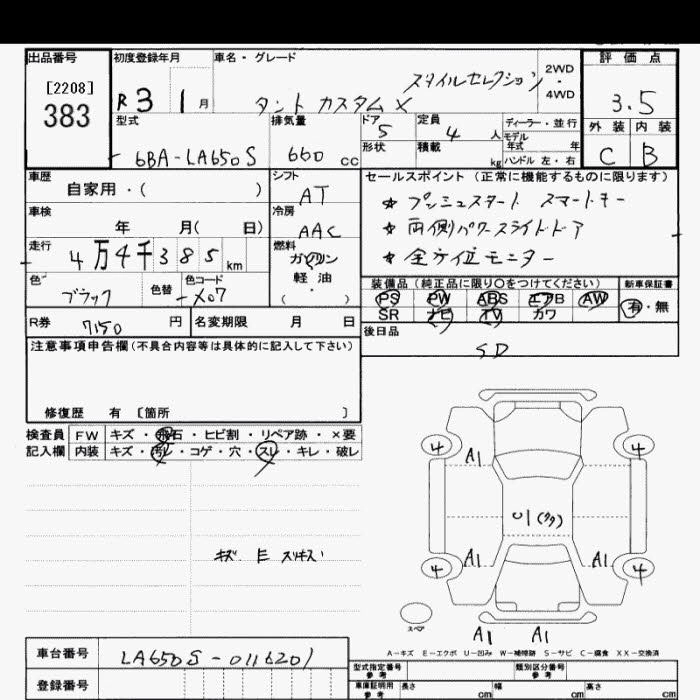 出品番号 初度登録年月 車名・グレード 2WD・4WD 評価点
[2208] 383 R3 1月 タント カスタム X スタイルセレクション 3.5
型式 排気量 ドア 定員 ディーラー・並行 外装 内装
-6BA-LA650S 660cc 5 4人 モデル年式 年 C B
形状 積載 kg ハンドル 左・右
車歴 自家用・( ) シフト AT セールスポイント (正常に機能するものに限ります)
☆ プッシュスタート スマートキー
車検 年 月( 日) 冷房 AAC ☆ 両側パワースライドドア
走行 4万4千385km 燃料 ガソリン ☆ 全方位モニター
軽油 ( ・ )
色 ブラック 色替 色コード -X07 装備品 (純正品に限り〇をつけてください) 新車保証書
PS PW ABS エアB AW 有・無
SR ナビ TV カワ
R券 7150円 名変期限 月 日 後日品
SD
注意事項申告欄(不具合内容等は具体的に記入して下さい)
修復歴 有 [箇所 ]
検査員 FW キズ・飛石・ヒビ割・リペア跡・×要
記入欄 内装 キズ・汚レ・コゲ・穴・スレ・キレ・破レ
4 A1 4
U1
キズ E スリキズ
4 A1 A1 4
スペア A1 A1
A-キズ E-エクボ U-凹み W-補修跡 S-サビ C-腐食 XX-交換済
車台番号 LA650S-0116201 型式指定番号 参考 類別区分番号 参考
登録番号 車庫証明用 参考 長さ cm 幅 cm 高さ cm